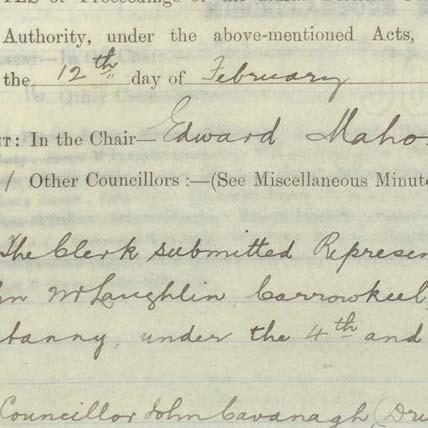 of Proceedings of the
Authority, under the above-mentioned Acts,
the 12th day of February
: In the Chair— Edward Maho
/ Other Councillors :—(See Miscellaneous Minut
The Clerk submitted Represen
hn McLaughlin, Carrowkeel,
tanny, under the 4th and
Councillor John Cavanagh, (Dru